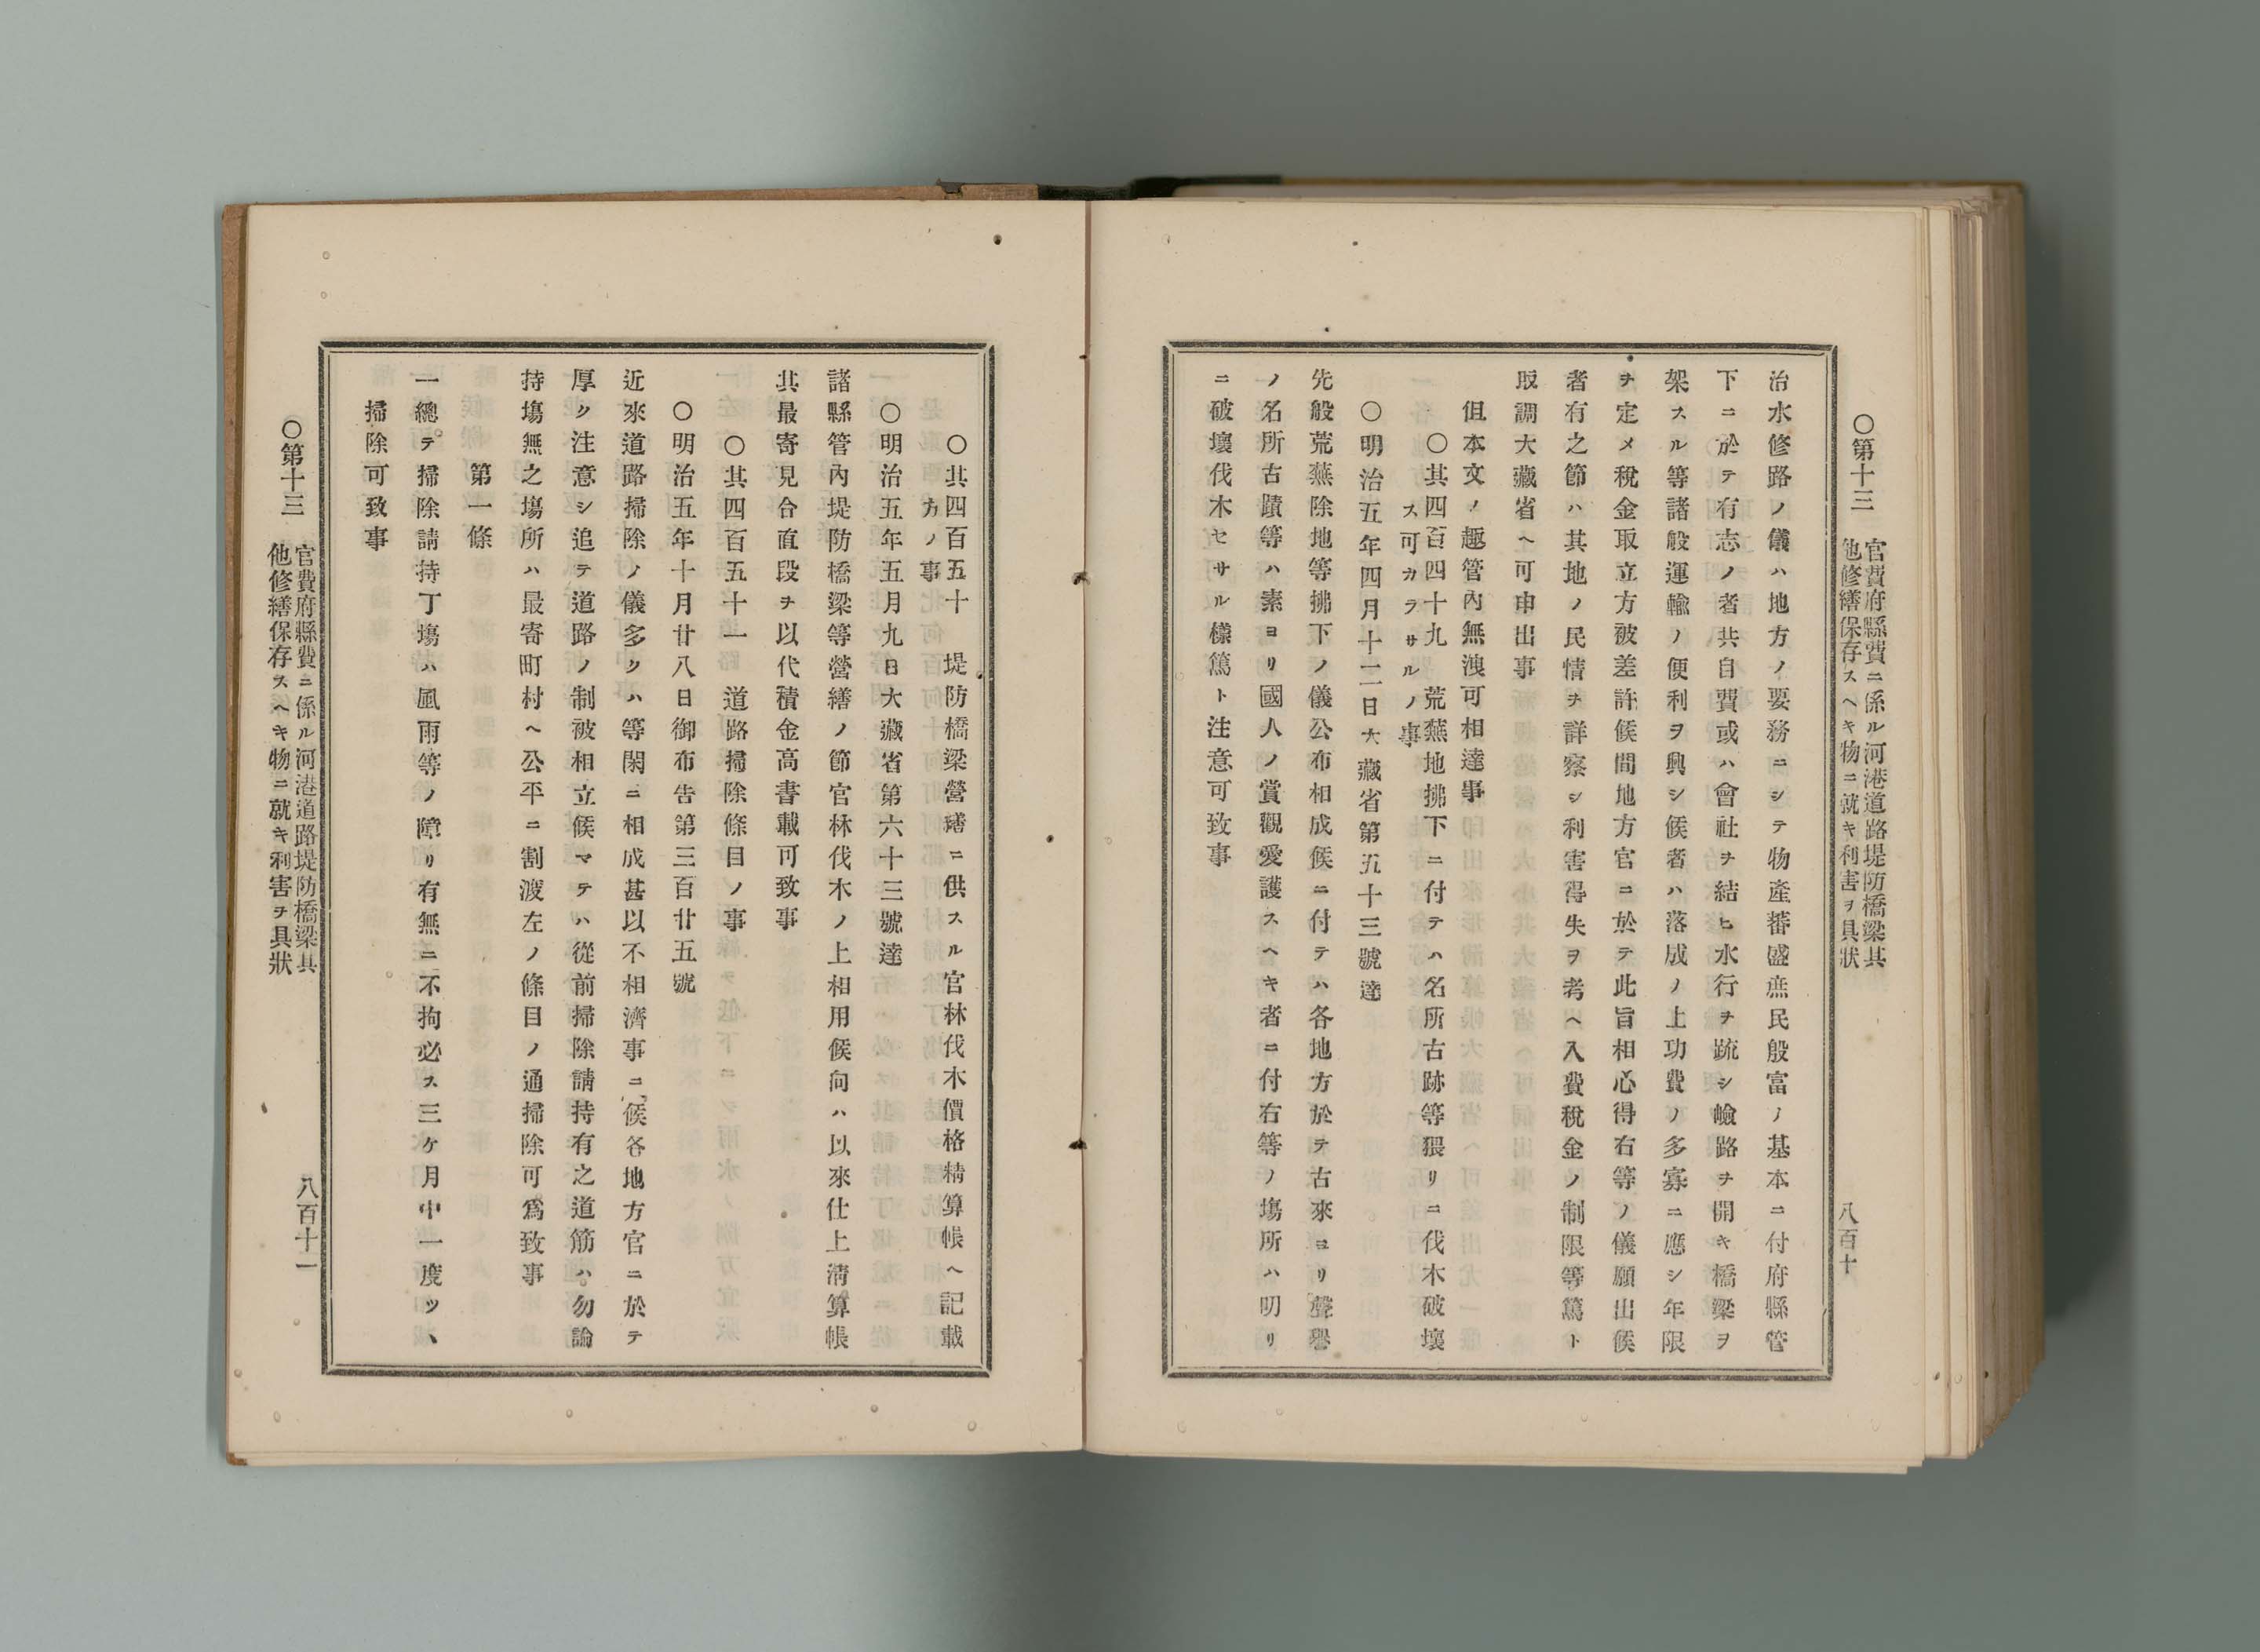 〇第十三　官費府縣費ニ係ル河港道路堤防橋梁其
他修繕保存スヘキ物ニ就キ利害ヲ具狀
八百十
治水修路ノ儀ハ地方ノ要務ニシテ物產蕃盛庶民殷富ノ基本ニ付府縣管
下ニ於テ有志ノ者共自費或ハ會社ヲ結ヒ水行ヲ疏シ嶮路ヲ開キ橋梁ヲ
架スル等諸般運輸ノ便利ヲ興シ候者ハ落成ノ上功費ノ多寡ニ應シ年限
ヲ定メ稅金取立方被差許候間地方官ニ於テ此旨相心得右等ノ儀願出候
者有之節ハ其地ノ民情ヲ詳察シ利害得失ヲ考ヘ入費稅金ノ制限等篤ト
取調大藏省ヘ可申出事
但本文ノ趣管內無洩可相達事
〇其四百四十九　荒蕪地拂下ニ付テハ名所古跡等猥リニ伐木破壞
ス可カラサルノ事
〇明治五年四月十二日大藏省第五十三號達
先般荒蕪除地等拂下ノ儀公布相成候ニ付テハ各地方於テ古來ヨリ聲譽
ノ名所古蹟等ハ素ヨリ國人ノ賞觀愛護スヘキ者ニ付右等ノ塲所ハ明リ
ニ破壞伐木セサル樣篤ト注意可致事
〇其四百五十　堤防橋梁營繕ニ供スル官林伐木價格精算帳ヘ記載
方ノ事
〇明治五年五月九日大藏省第六十三號達
諸縣管內堤防橋梁等營繕ノ節官林伐木ノ上相用候向ハ以來仕上淸算帳
其最寄見合直段ヲ以代積金高書載可致事
〇其四百五十一　道路掃除條目ノ事
〇明治五年十月廿八日御布告第三百廿五號
近來道路掃除ノ儀多クハ等閑ニ相成甚以不相濟事ニ候各地方官ニ於テ
厚ク注意シ追テ道路ノ制被相立候マテハ從前掃除請持有之道筋ハ勿論
持塲無之塲所ハ最寄町村ヘ公平ニ割渡左ノ條目ノ通掃除可爲致事
第一條
一總テ掃除請持丁塲ハ風雨等ノ障リ有無ニ不拘必ス三ケ月中一度ツヽ
掃除可致事
〇第十三　官費府縣費ニ係ル河港道路堤防橋梁其
他修繕保存スヘキ物ニ就キ利害ヲ具狀
八百十一